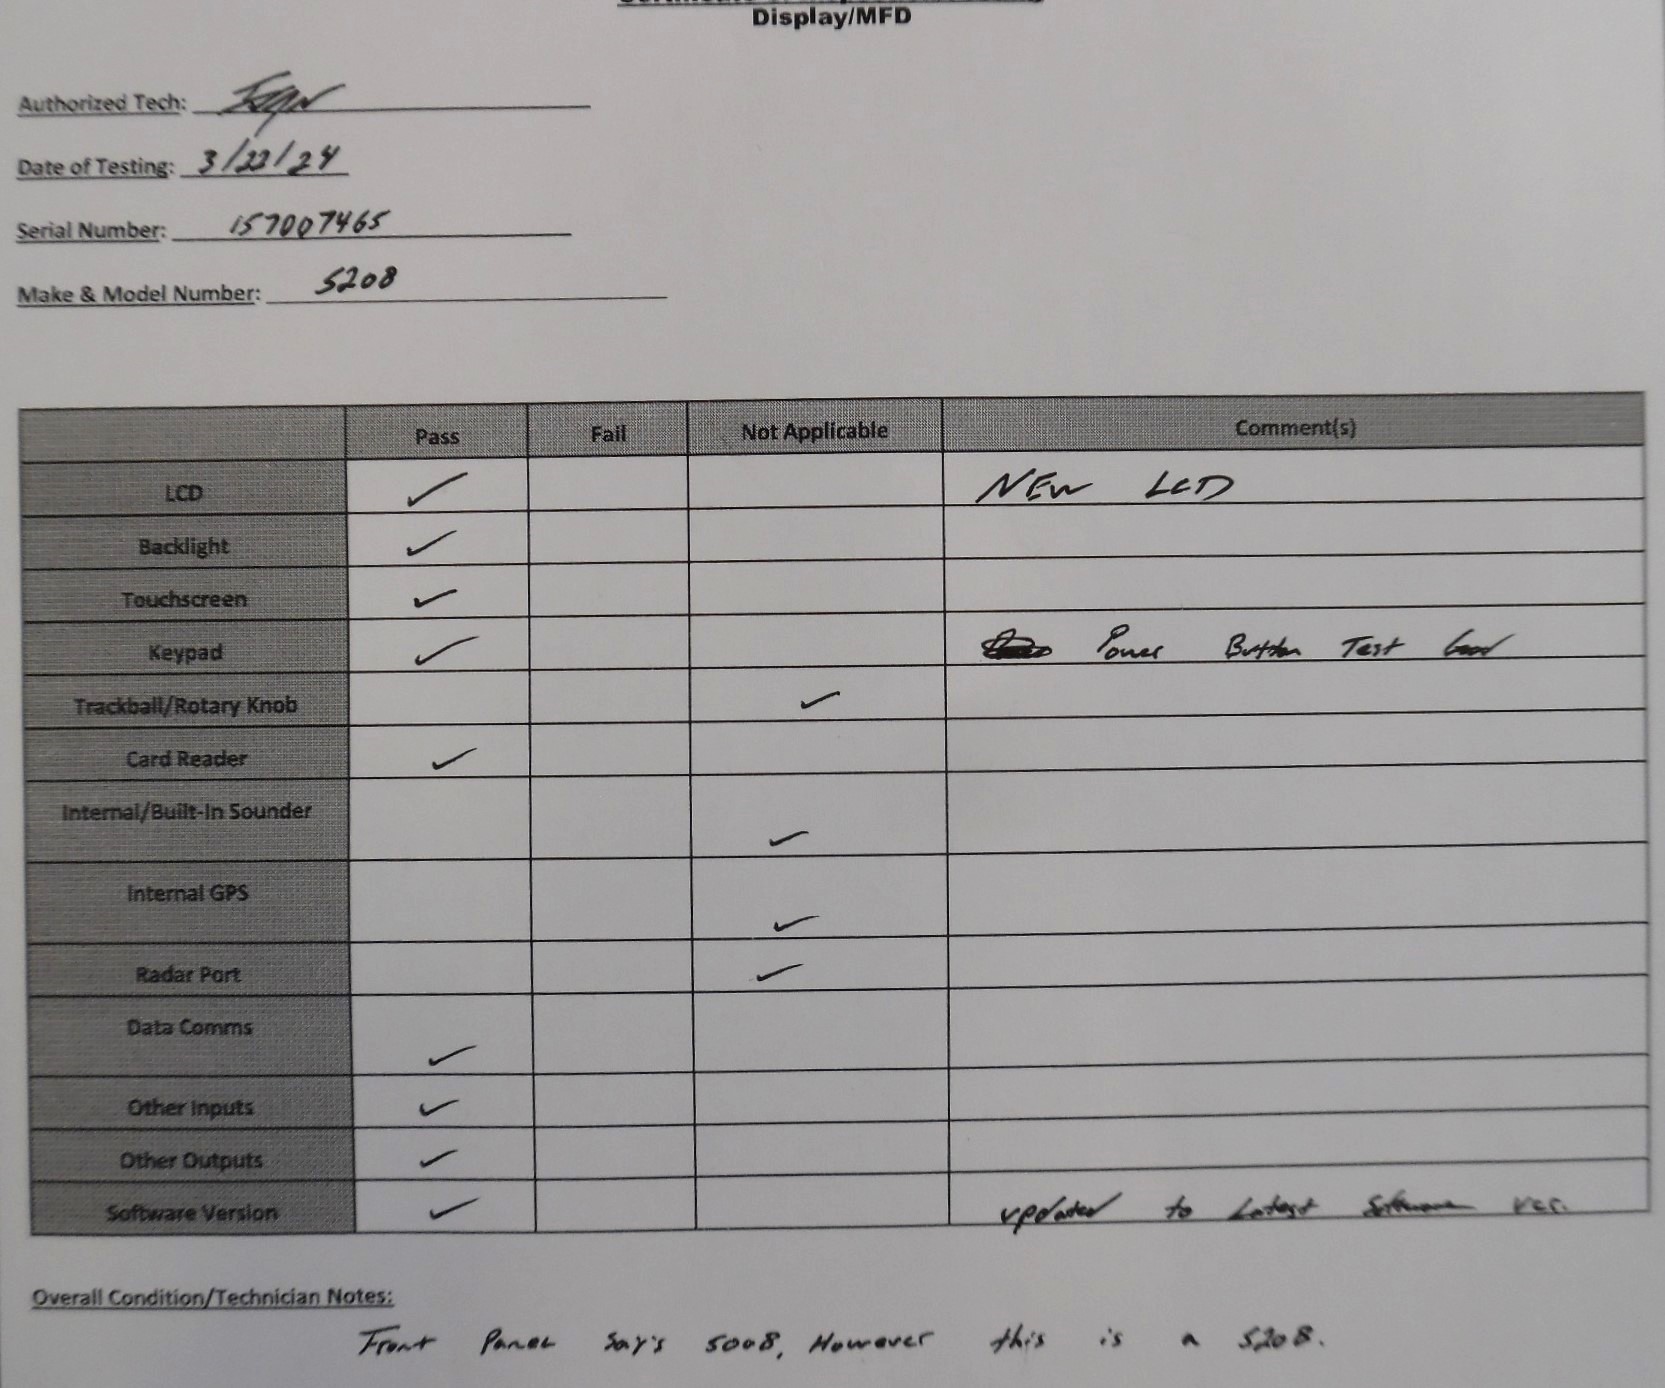 Display/MFD
Authorized Tech:
Date of Testing: 3/22/24
Serial Number: 157007465
Make & Model Number: 5208
Pass Fail Not Applicable Comment(s)
LCD ✓ NEW LCD
Backlight ✓
Touchscreen ✓
Keypad ✓ Power Button Test Good
Trackball/Rotary Knob ✓
Card Reader ✓
Internal/Built-In Sounder ✓
Internal GPS ✓
Radar Port ✓
Data Comms ✓
Other Inputs ✓
Other Outputs ✓
Software Version ✓ updated to Latest Software ver.
Overall Condition/Technician Notes:
Front Panel Say's 5008, However this is a 5208.